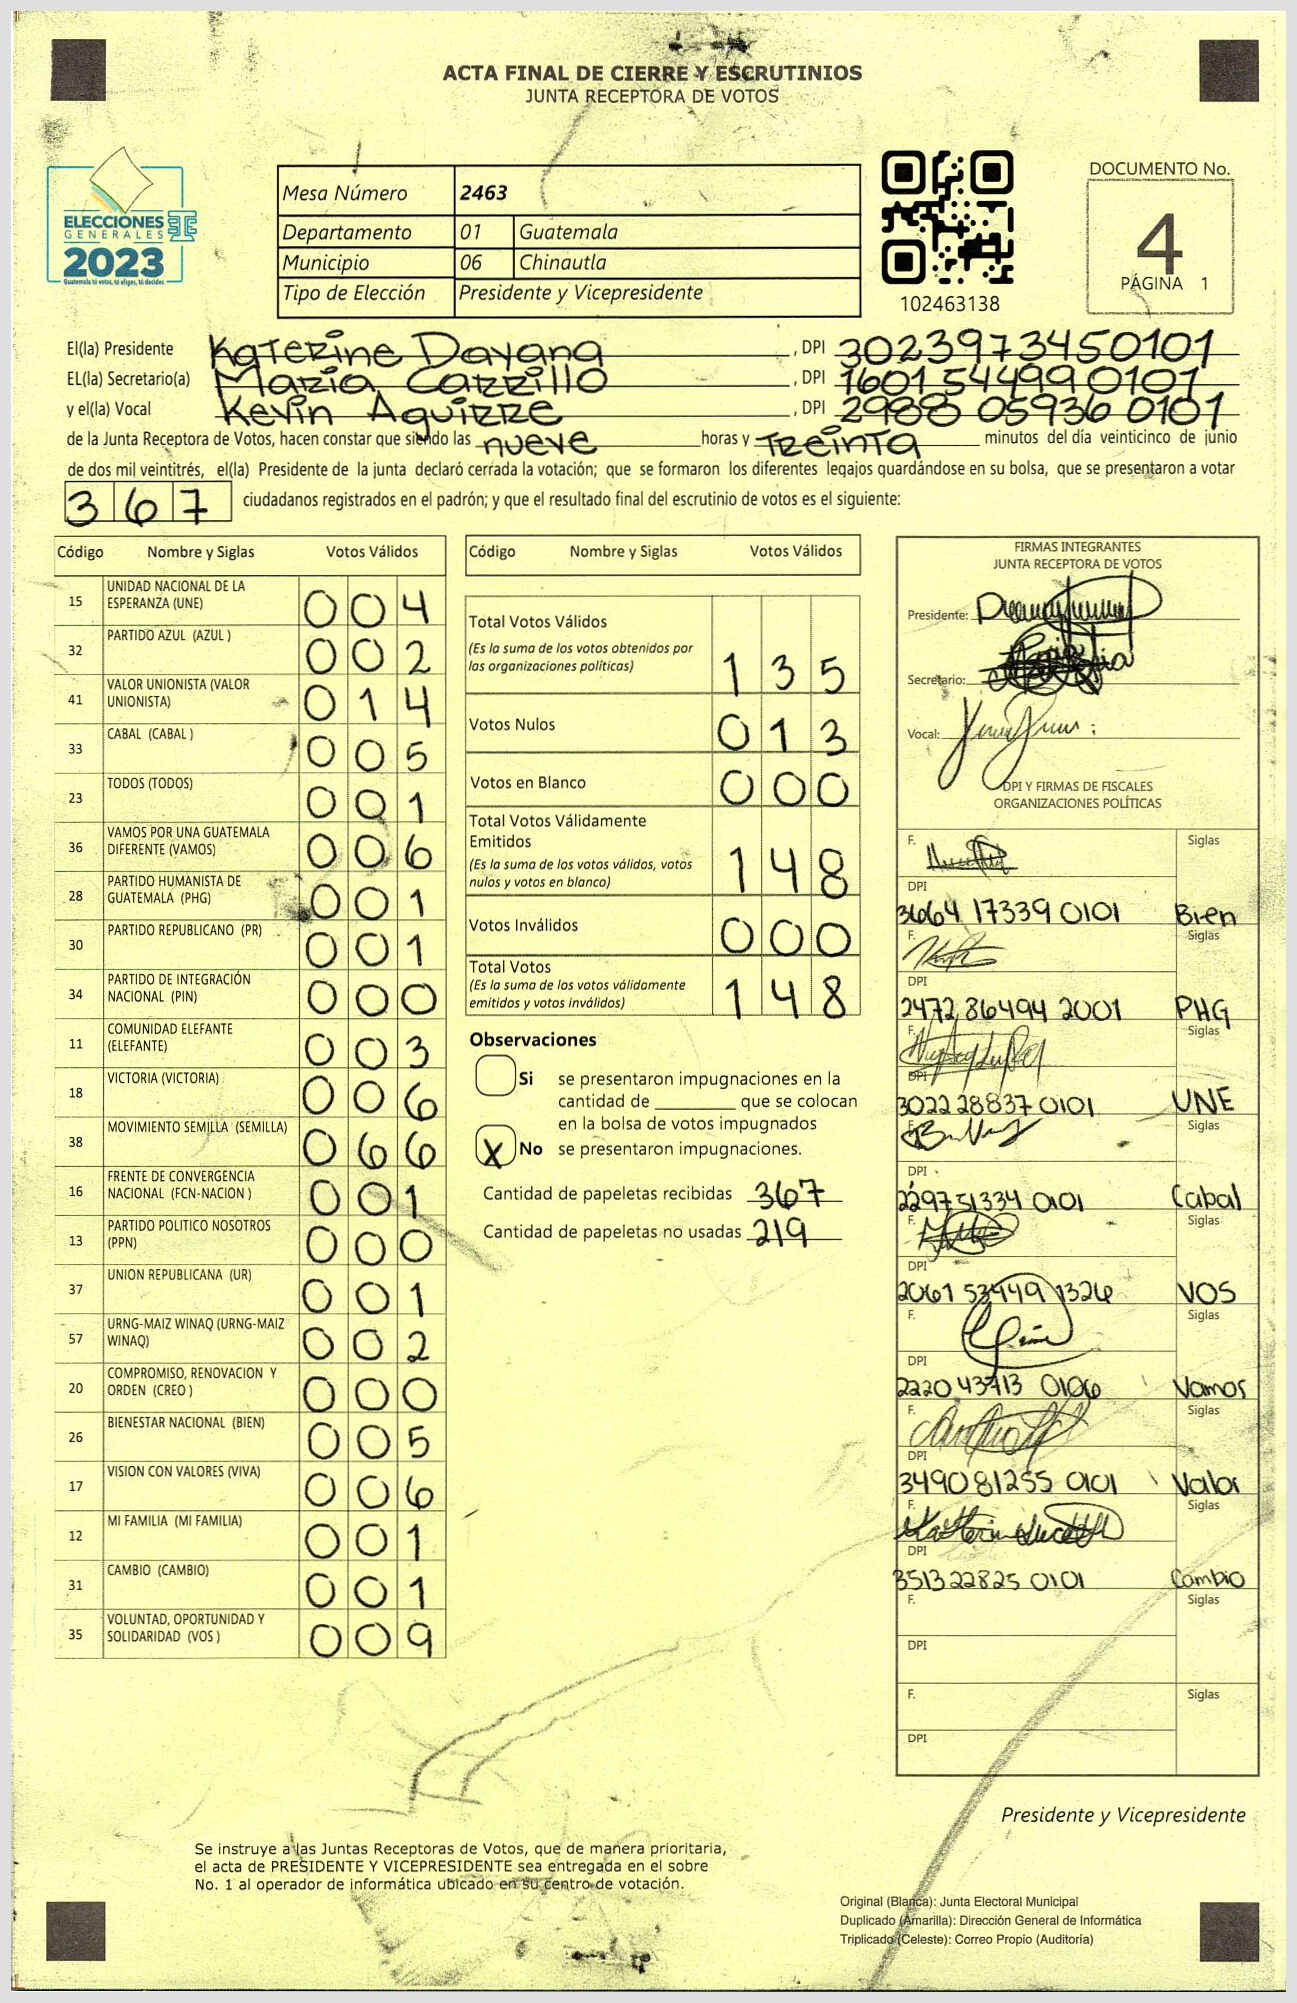 ACTA FINAL DE CIERRE Y ESCRUTINIOS
JUNTA RECEPTORA DE VOTOS
ELECCIONES
GENERALES
2023
Guatemala tú votas, tú eliges, tú decides
Mesa Número 2463
Departamento 01 Guatemala
Municipio 06 Chinautla
Tipo de Elección Presidente y Vicepresidente
102463138
DOCUMENTO No.
4
PÁGINA 1
El(la) Presidente Katerine Dayana , DPI 3023973450101
EL(la) Secretario(a) Maria Carrillo , DPI 1601 54499 0101
y el(la) Vocal Kevin Aguirre , DPI 2988 05936 0101
de la Junta Receptora de Votos, hacen constar que siendo las nueve horas y Treinta minutos del día veinticinco de junio
de dos mil veintitrés, el(la) Presidente de la junta declaró cerrada la votación; que se formaron los diferentes legajos guardándose en su bolsa, que se presentaron a votar
367 ciudadanos registrados en el padrón; y que el resultado final del escrutinio de votos es el siguiente:
Código Nombre y Siglas Votos Válidos
15 UNIDAD NACIONAL DE LA ESPERANZA (UNE) 004
32 PARTIDO AZUL (AZUL ) 002
41 VALOR UNIONISTA (VALOR UNIONISTA) 014
33 CABAL (CABAL ) 005
23 TODOS (TODOS) 001
36 VAMOS POR UNA GUATEMALA DIFERENTE (VAMOS) 006
28 PARTIDO HUMANISTA DE GUATEMALA (PHG) 001
30 PARTIDO REPUBLICANO (PR) 001
34 PARTIDO DE INTEGRACIÓN NACIONAL (PIN) 000
11 COMUNIDAD ELEFANTE (ELEFANTE) 003
18 VICTORIA (VICTORIA) 006
38 MOVIMIENTO SEMILLA (SEMILLA) 066
16 FRENTE DE CONVERGENCIA NACIONAL (FCN-NACION ) 001
13 PARTIDO POLITICO NOSOTROS (PPN) 000
37 UNION REPUBLICANA (UR) 001
57 URNG-MAIZ WINAQ (URNG-MAIZ WINAQ) 002
20 COMPROMISO, RENOVACION Y ORDEN (CREO ) 000
26 BIENESTAR NACIONAL (BIEN) 005
17 VISION CON VALORES (VIVA) 006
12 MI FAMILIA (MI FAMILIA) 001
31 CAMBIO (CAMBIO) 001
35 VOLUNTAD, OPORTUNIDAD Y SOLIDARIDAD (VOS ) 009
Código Nombre y Siglas Votos Válidos
Total Votos Válidos
(Es la suma de los votos obtenidos por
las organizaciones políticas) 135
Votos Nulos 013
Votos en Blanco 000
Total Votos Válidamente
Emitidos
(Es la suma de los votos válidos, votos
nulos y votos en blanco) 148
Votos Inválidos 000
Total Votos
(Es la suma de los votos válidamente
emitidos y votos inválidos) 148
Observaciones
Si se presentaron impugnaciones en la
cantidad de ________ que se colocan
en la bolsa de votos impugnados
X No se presentaron impugnaciones.
Cantidad de papeletas recibidas 367
Cantidad de papeletas no usadas 219
FIRMAS INTEGRANTES
JUNTA RECEPTORA DE VOTOS
Presidente:
Secretario:
Vocal:
DPI Y FIRMAS DE FISCALES
ORGANIZACIONES POLÍTICAS
F. Siglas
DPI
3664 17339 0101 Bien
F. Siglas
DPI
2472 86494 2001 PHG
F. Siglas
DPI
3022 28837 0101 UNE
F. Siglas
DPI
229751334 0101 Cabal
F. Siglas
DPI
2061 53449 1326 VOS
F. Siglas
DPI
2220 43713 0106 Vamos
F. Siglas
DPI
349081255 0101 Valor
F. Siglas
DPI
351322825 0101 Cambio
F. Siglas
DPI
F. Siglas
DPI
Presidente y Vicepresidente
Se instruye a las Juntas Receptoras de Votos, que de manera prioritaria,
el acta de PRESIDENTE Y VICEPRESIDENTE sea entregada en el sobre
No. 1 al operador de informática ubicado en su centro de votación.
Original (Blanca): Junta Electoral Municipal
Duplicado (Amarilla): Dirección General de Informática
Triplicado (Celeste): Correo Propio (Auditoría)